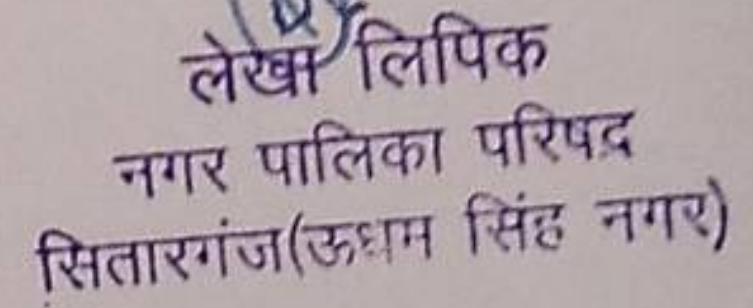 लेखा लिपिक
नगर पालिका परिषद्
सितारगंज(ऊधम सिंह नगर)